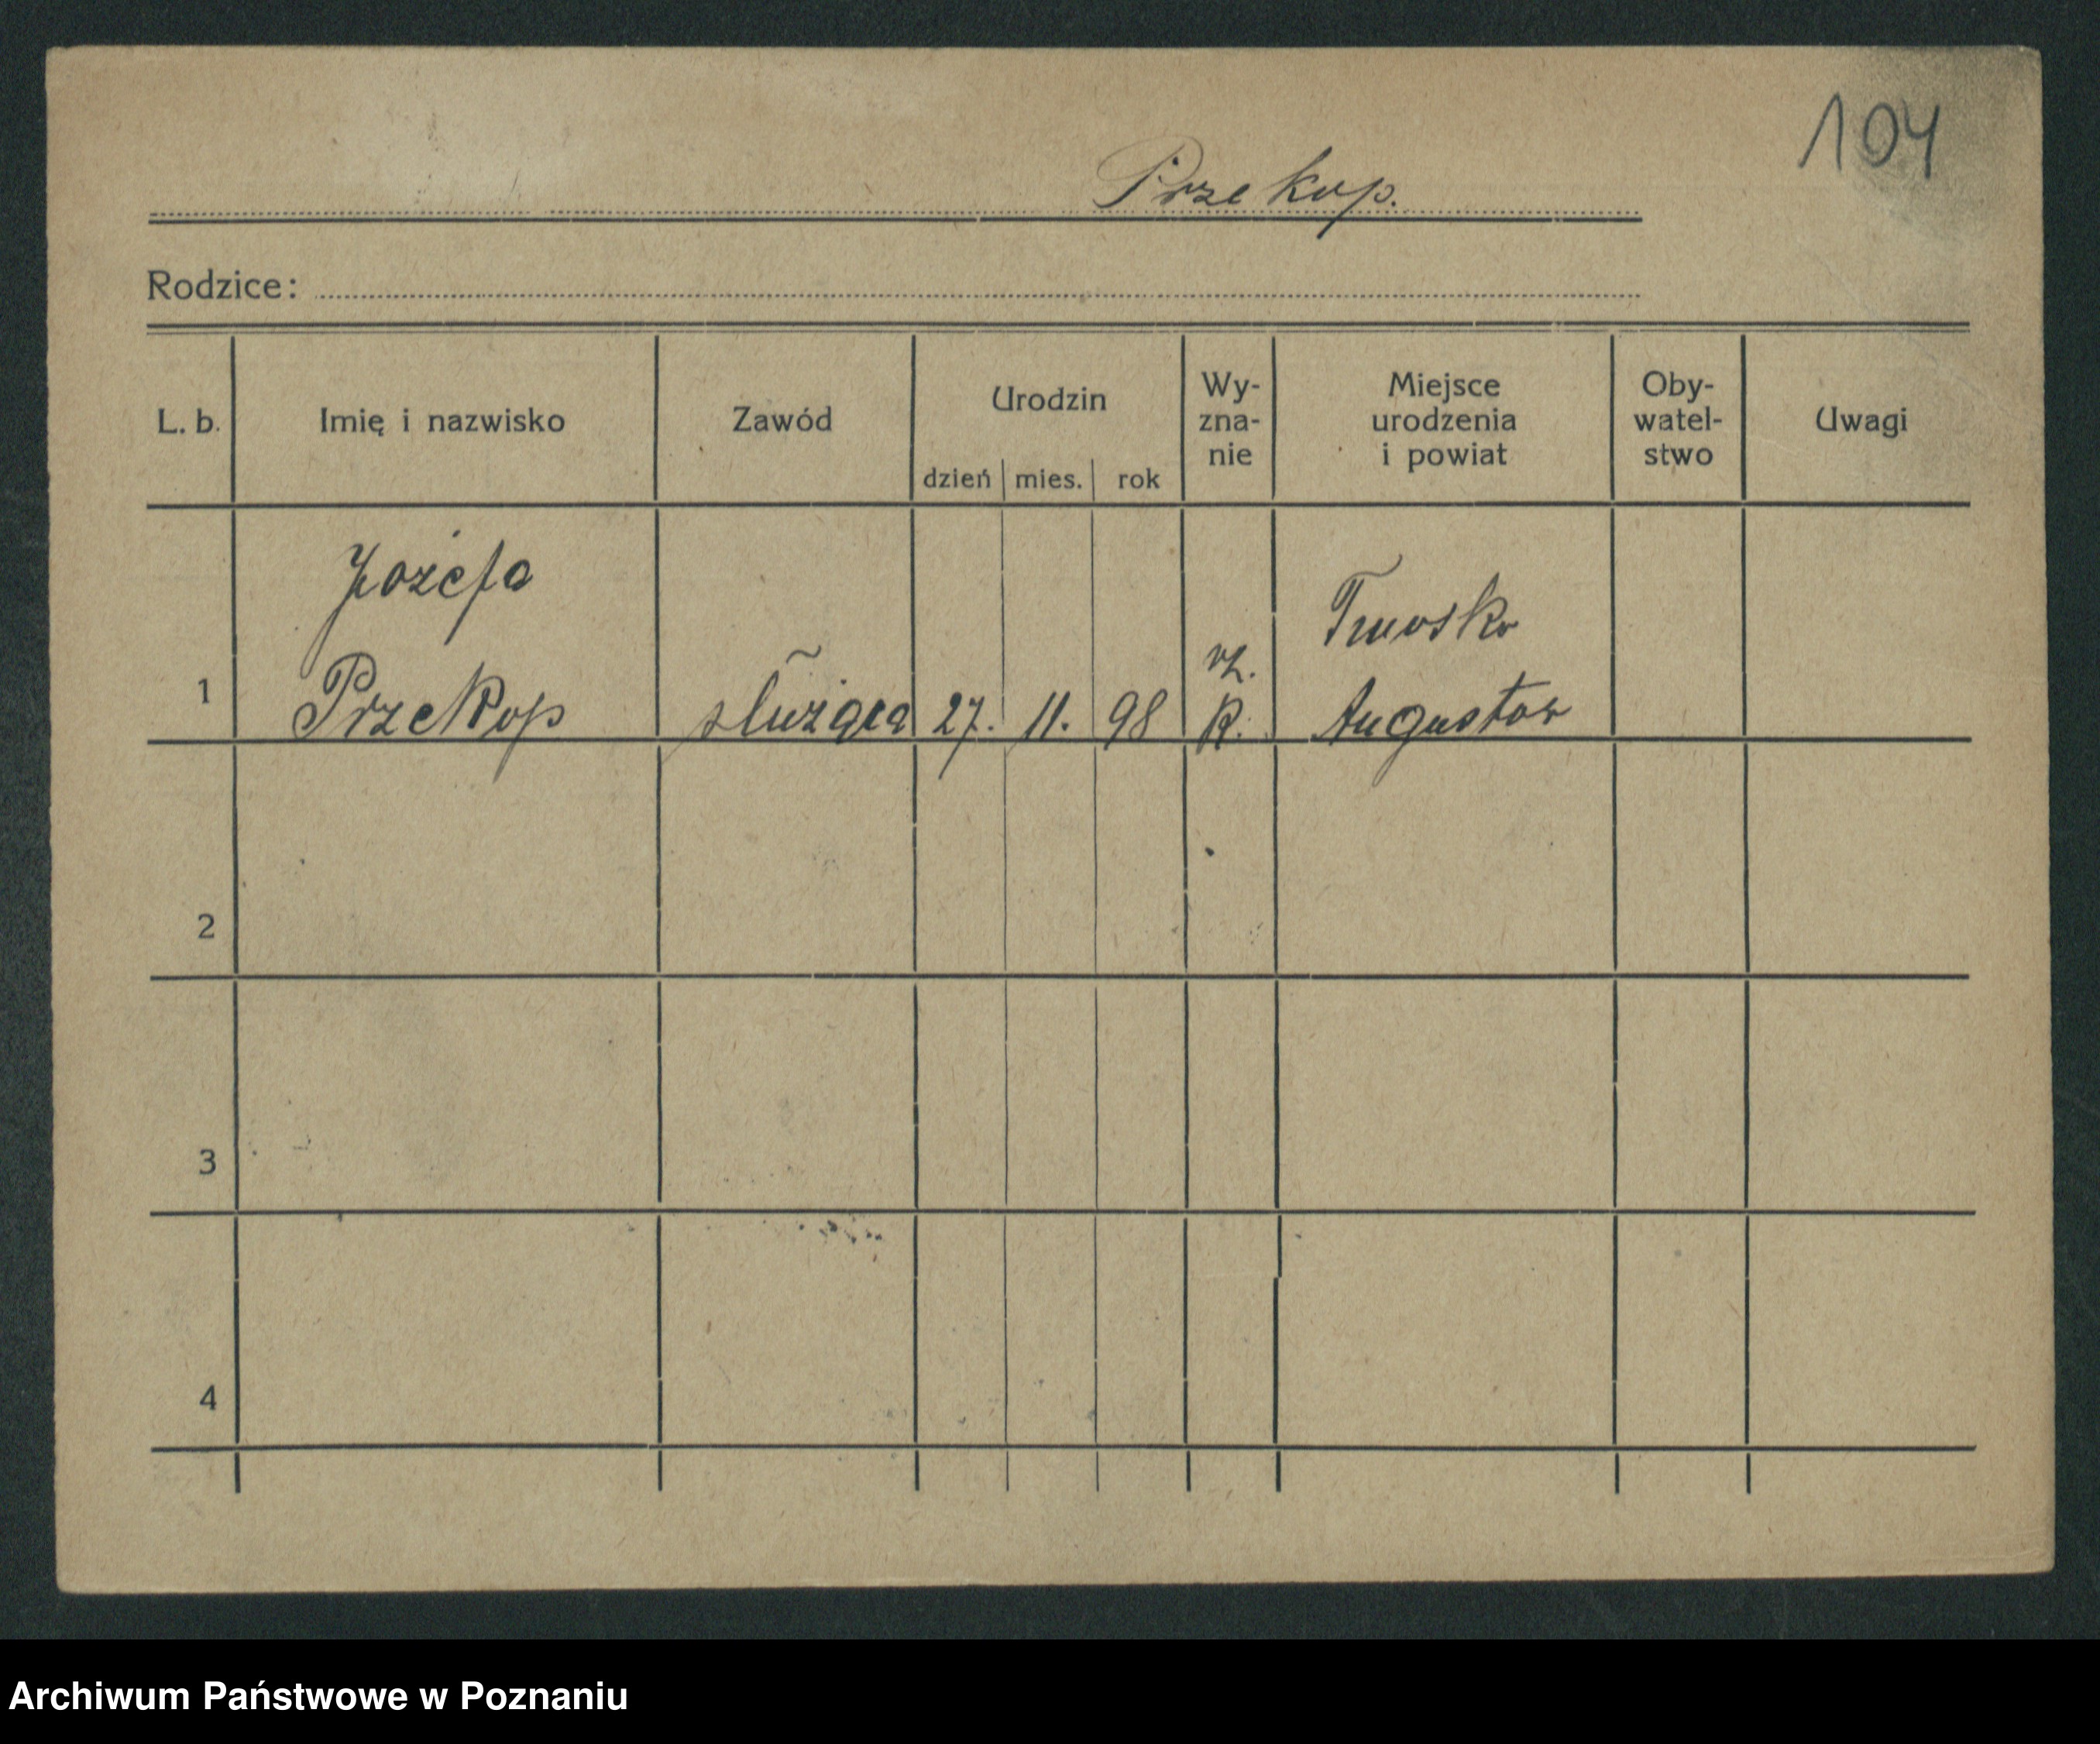 104
Przekop.
Rodzice:
L. b.
Imię i nazwisko
Zawód
Urodzin
dzień mies. rok
Wy-
zna-
nie
Miejsce
urodzenia
i powiat
Oby-
watel-
stwo
Uwagi
1
Józefa
Przekop
służąca
27. 11. 98
rz.
K.
Augustow
2
3
4
Archiwum Państwowe w Poznaniu